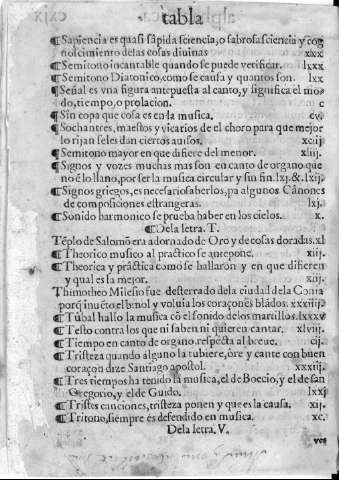 tabla
¶Sapiencia es quasi sapida sciencia, o sabrosa sciencia y cog
noscimiento delas cosas diuinas xxxx
¶Semitono incantable quando se puede verificar. lxxx
¶Semitono Diatonico, como se causa y quantos son. lxx
¶Señal es vna figura antepuesta al canto, y significa el mo-
do, tiempo, o prolacion. c
¶Sin copa que cosa es en la musica. cv.
¶Sochantres, maestos y vicarios de el choro para que mejor
lo rijan se les dan ciertos auisos. xciij
¶Semitono mayor en que difiere del menor. xliij.
¶Signos y vozes muchas mas son en canto de organo que
no ẽ lo llano, por ser la musica circular y sin fin. lxj. & .lxij.
¶Signos griegos, es necesario saberlos, pa algunos Cánones
de composiciones estrangeras. lxj.
¶Sonido harmonico se prueba haber en los cielos. x.
¶Dela letra. T.
Tẽplo de Salomõ era adornado de Oro y de cosas doradas. xl
¶Theorico musico al practico se antepone. xij.
¶Theorica y práctica como se hallaron y en que difieren
y qual es la mejor. xij.
Thimotheo Milesio fue desterrado dela ciudad dela Coma
porq̃ inuẽto el b mol y voluia los coraçones blãdos. xxxiij.
¶Túbal hallo la musica cõ el sonido de los martillos. lxxxv
¶Testo contra los que ni saben ni quieren cantar. xlviij.
¶Tiempo en canto de organo respecta al breue. cij.
¶Tristeza quando alguno la tubiere, ôre y cante con buen
coraçon dize Santiago apostol. xxxiij.
¶Tres tiempos ha tenido la musica, el de Boecio, y el de san
Gregorio, y el de Guido. lxxj
¶Tristes canciones, tristeza ponen y que es la causa. xij.
¶Tritono, siempre es defendido en musica. xc.
Dela letra. V.